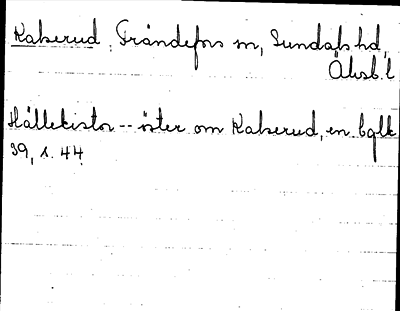 Kalserud, Frändefors sn, Sundals hd,
Älvsb. l
Hällekistor -- öster om Kalserud, en bqlk
39, s. 44